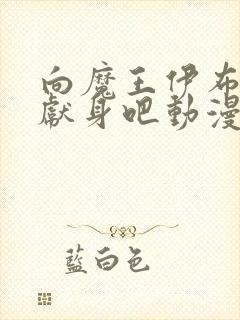 向魔王伊布
獻身吧動漫
藍白色